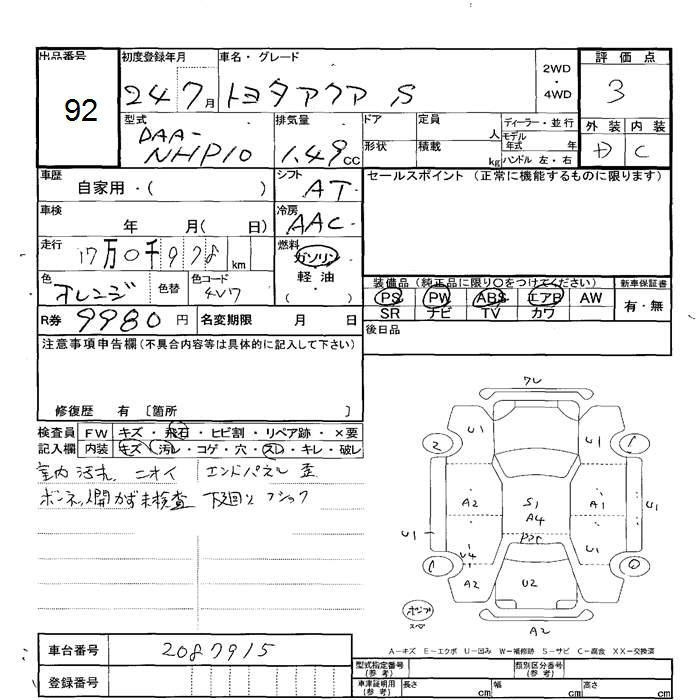 出品番号 初度登録年月 車名・グレード 2WD・4WD 評価点
92 24 7月 トヨタアクア S 3
型式 排気量 ドア 定員 人 ディーラー・並行 外装 内装
DAA-NHP10 1.49cc 形状 積載 kg モデル年式 年 ハンドル 左・右 D C
車歴 自家用・( ) シフト AT セールスポイント (正常に機能するものに限ります)
車検 年 月( 日) 冷房 AAC
走行 17万0千978km 燃料 ガソリン 軽油 ( ・ )
色 オレンジ 色替 色コード 4V7
装備品 (純正品に限り○をつけてください) 新車保証書
PS PW ABS エアB AW 有・無
SR ナビ TV カワ
R券 9980円 名変期限 月 日 後日品
注意事項申告欄(不具合内容等は具体的に記入して下さい)
修復歴 有 [箇所 ]
検査員 FW キズ・飛石・ヒビ割・リペア跡・×要
記入欄 内装 キズ・汚レ・コゲ・穴・スレ・キレ・破レ
室内汚れ ニオイ エンドパネル歪
ボンネット開かず未検査 下廻り フショク
ワレ
U1
U1 U1
2 1
A2 S1 A1
A4
U1 U1
U4 U1
1 0
A2 U2
A2
A-キズ E-エクボ U-凹み W-補修跡 S-サビ C-腐食 XX-交換済
車台番号 2087915
登録番号
型式指定番号(参考) 類別区分番号(参考)
車庫証明用(参考) 長さ cm 幅 cm 高さ cm